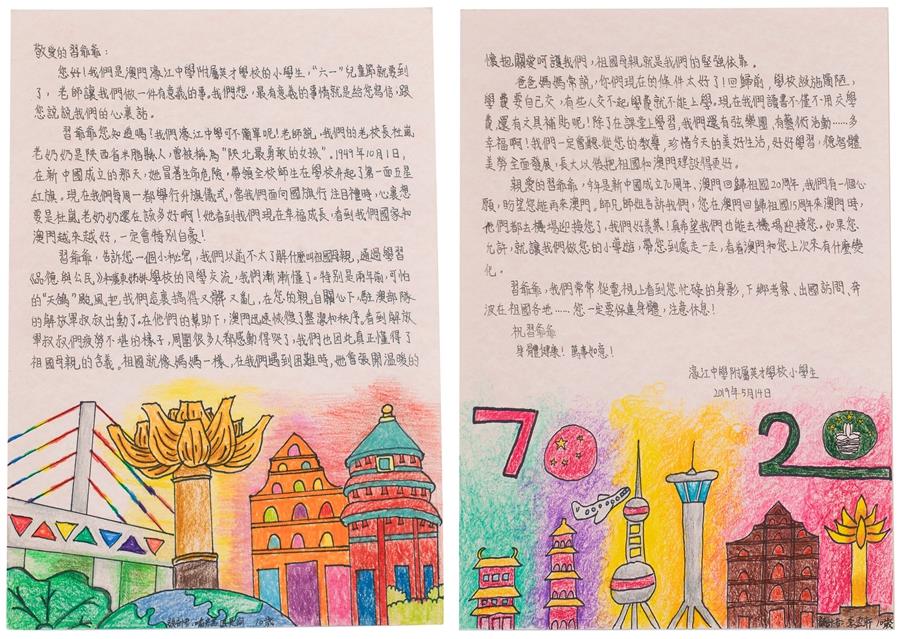 敬愛的習爺爺:
您好!我們是澳門濠江中學附屬英才學校的小學生,“六一”兒童節就要到
了,老師讓我們做一件有意義的事。我們想,最有意義的事情就是給您寫信,跟
您說說我們的心裏話。
習爺爺您知道嗎!我們濠江中學可不簡單呢!老師說,我們的老校長杜嵐
老奶奶是陝西省米脂縣人,曾被稱為“陝北最勇敢的女孩”。1949年10月1日,
在新中國成立的那天,她冒著生命危險,帶領全校師生在學校升起了第一面五星
紅旗。現在我們每周一都舉行升旗儀式,當我們面向國旗行注目禮時,心裏想
要是杜嵐老奶奶還在該多好啊!她看到我們現在幸福成長,看到我們國家和
澳門越來越好,一定會特別自豪!
習爺爺,告訴您一個小秘密,我們以前不太了解什麼叫祖國母親,通過學習
《品德與公民》學校的同學交流,我們漸漸懂了。特別是兩年前,可怕
的“天鴿”颱風把我們這裏搞得又髒又亂,在您的親自關心下,駐澳部隊
的解放軍叔叔出動了。在他們的幫助下,澳門迅速恢復了整潔和秩序。看到解放
軍叔叔們疲勞不堪的樣子,周圍很多人都感動得哭了,我們也因此真正懂得了
祖國母親的含義。祖國就像媽媽一樣,在我們遇到困難時,她會張開溫暖的
10歲
懷抱關愛呵護我們,祖國母親就是我們的堅強依靠。
爸爸媽媽常說,你們現在的條件太好了!回歸前,學校設施簡陋,
學費要自己交,有些人交不起學費就不能上學。現在我們讀書不僅不用交學
費,還有文具補貼呢!除了在課堂上學習,我們還有弦樂團,有藝術活動……多
幸福啊!我們一定會聽從您的教導,珍惜今天的美好生活,好好學習,德智體
美勞全面發展,長大以後把祖國和澳門建設得更好。
親愛的習爺爺,今年是新中國成立70周年、澳門回歸祖國20周年,我們有一個心
願,盼望您能再來澳門。師兄師姐告訴我們,您在澳門回歸祖國15周年來澳門時,
他們都去機場迎接您了,我們好羨慕!真希望我們也能去機場迎接您。如果您
允許,就讓我們做您的小導遊,帶您到處走一走,看看澳門和您上次來有什麼變
化。
習爺爺,我們常常從電視上看到您忙碌的身影,下鄉考察、出國訪問、奔
波在祖國各地……您一定要保重身體,注意休息!
祝習爺爺
身體健康!萬事如意!
濠江中學附屬英才學校小學生
2019年5月14日
70 20
10歲